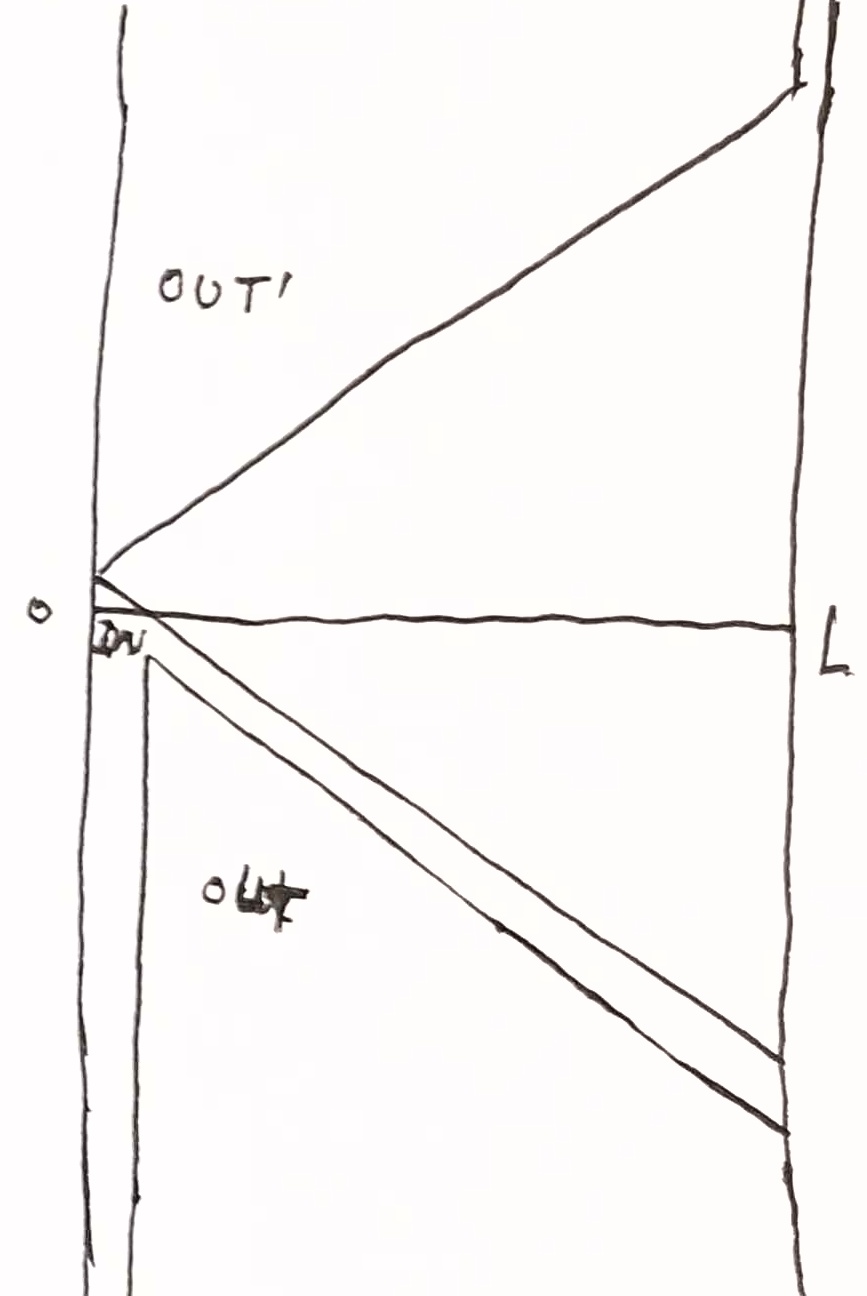 OUT'
0
IN
L
OUT